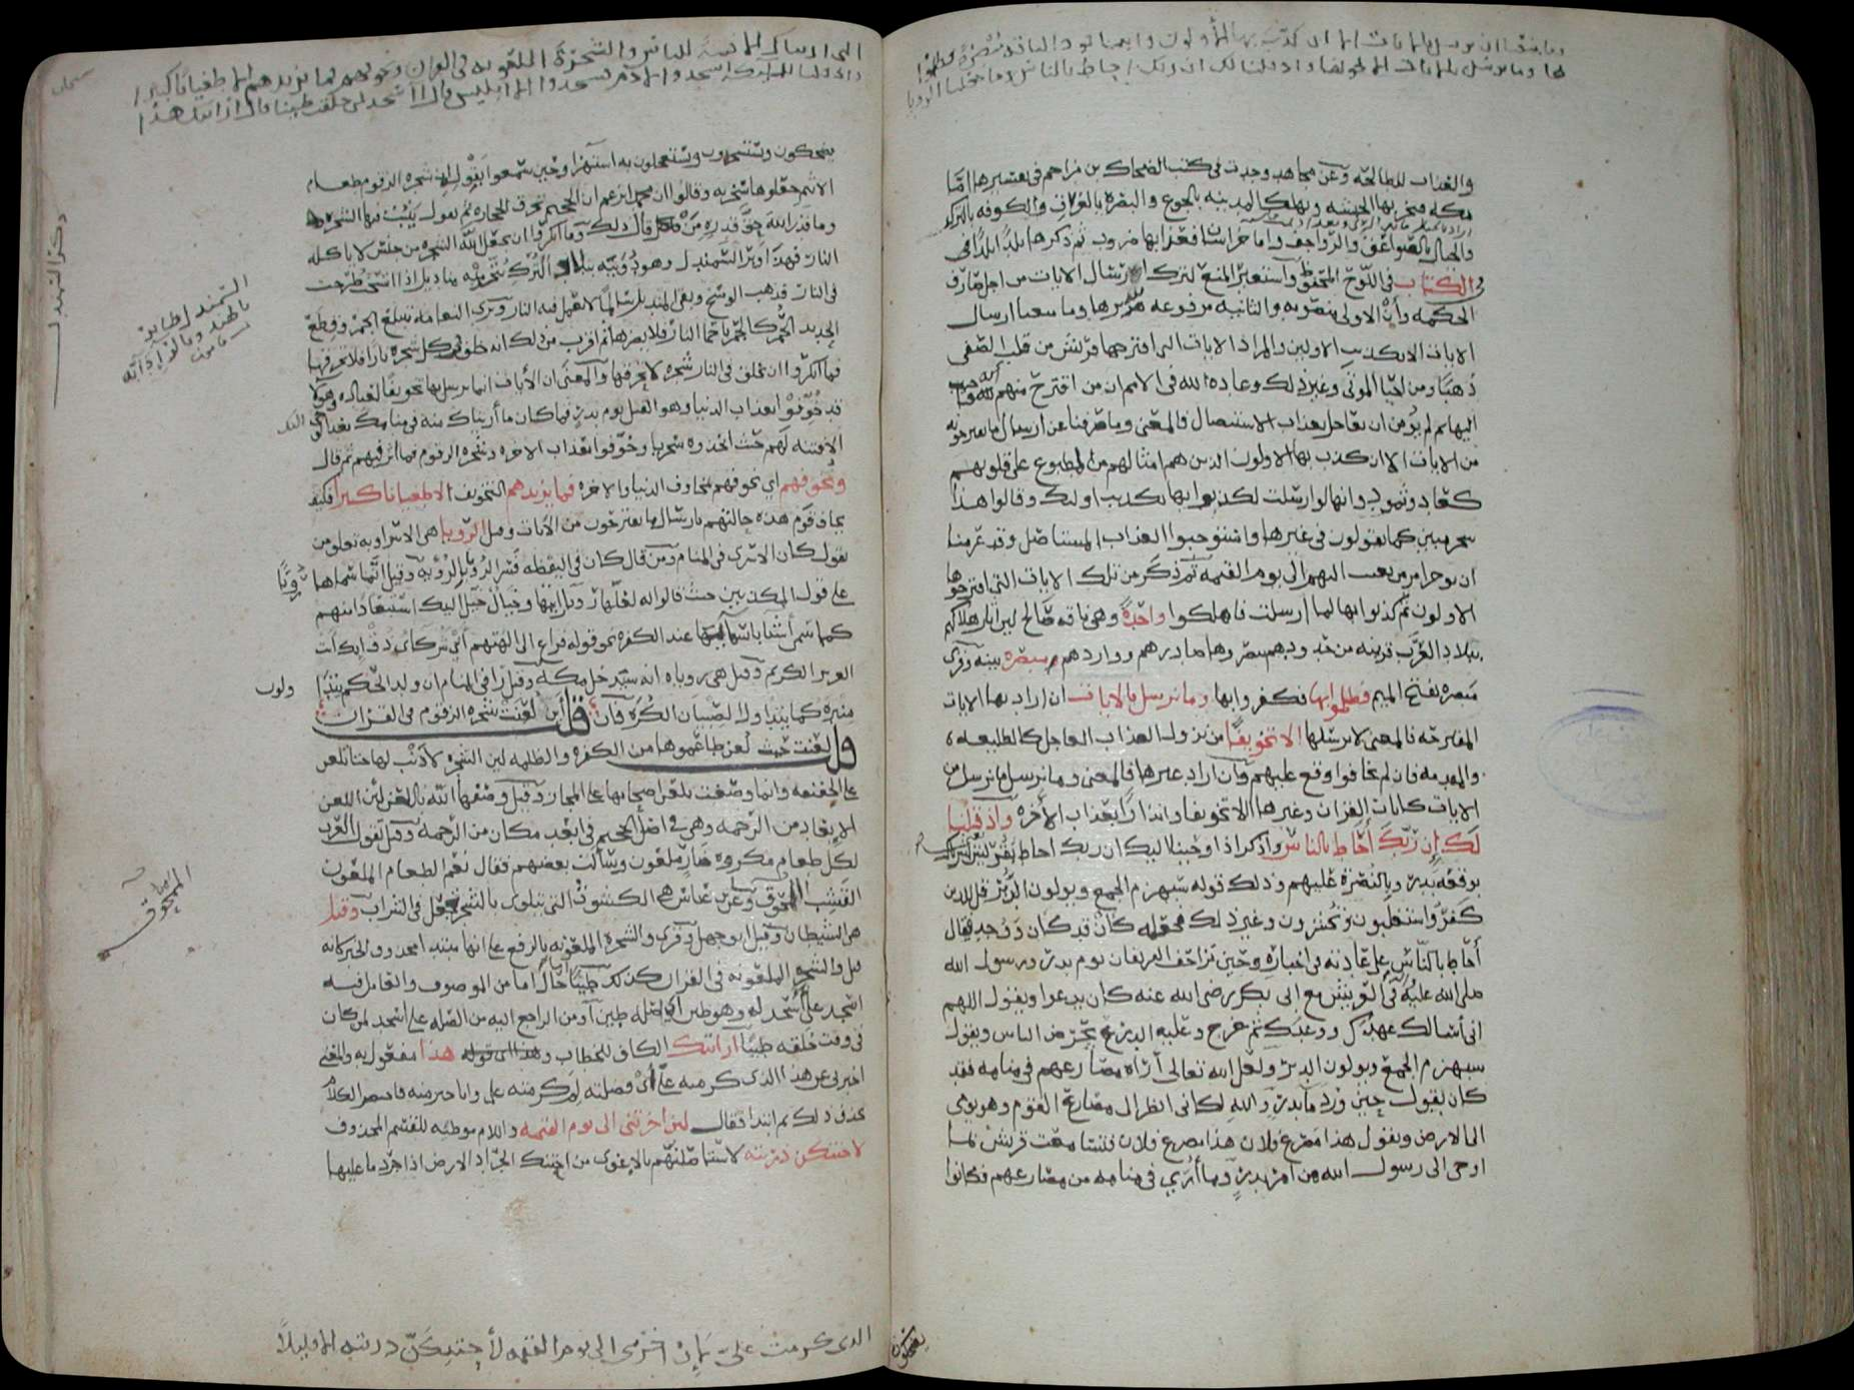 وما منعنا ان نرسل بالايات الا ان كذب بها الاولون واتينا ثمود الناقة مبصرة فظلموا
بها وما نرسل بالايات الا تخويفا واذ قلنا لك ان ربك احاط بالناس وما جعلنا الرويا
والعذاب للطالحة وعن مجاهد وجدت في كتب الضحاك بن مزاحم في تفسيرها اما
مكة فيخربها الحبشة وتهلك المدينة بالجوع والبصرة بالغرق والكوفة بالترك
والجبال بالصواعق والرواجف واما خراسان فعذابها ضروب ثم ذكرها بلدا بلدا في
الكتاب في اللوح المحفوظ استعير المنع لترك ارسال الايات من اجل صارف
الحكمة وأن الاولى منصوبة والثانية مرفوعة وما منعنا ارسال
الايات الا تكذيب الاولين والمراد الايات التي اقترحتها قريش من قلب الصفى
ذهبا ومن احيا الموتى وغير ذلك وعادة الله في الامم ان من اقترح منهم اية فاجيب
اليها ثم لم يؤمن ان يعاجل بعذاب الاستئصال فالمعنى وما صرفنا عن ارسال ما يقترحونه
من الايات الا ان كذب بها الاولون الذين هم امثالهم من المطبوع على قلوبهم
كعاد وثمود وانها لو ارسلت لكذبوا بها تكذيب اولئك وقالوا هذا
سحر مبين كما يقولون في غيرها واستوجبوا العذاب المستاصل وقد عزمنا
ان نوخر امر من بعثت اليهم الى يوم القيمة ثم ذكر من تلك الايات التي اقترحها
الاولون ثم كذبوا بها لما ارسلت فاهلكوا واحدة وهي ناقة صالح لان اثار هلاكهم
ببلاد العرب قريبة من حدودهم يبصرها صادرهم وواردهم مبصرة بينة وقرئ
مبصرة بفتح الميم فظلموا بها فكفروا بها وما نرسل بالايات ان اراد بها الايات
المقترحة فالمعنى لا نرسلها الا تخويفا من نزول العذاب العاجل كالطليعة
والمقدمة فان لم يخافوا وقع عليهم وان اراد غيرها فالمعنى وما نرسل ما نرسل من
الايات كايات القران وغيرها الا تخويفا وانذارا بعذاب الاخرة واذ قلنا
لك إن ربك أحاط بالناس واذكر اذ اوحينا اليك ان ربك احاط بقريش
بوقعة بدر وبالنصرة عليهم وذلك قوله سيهزم الجمع ويولون الدبر قل للذين
كفروا ستغلبون وتحشرون وغير ذلك فجعله كان قد كان ووجد فقال
أحاط بالناس على عادته في اخباره وحين تزاحف الفريقان يوم بدر ورسول الله
صلى الله عليه في العريش مع ابي بكر رضي الله عنه كان يدعوا ويقول اللهم
اني أسالك عهدك ووعدك ثم خرج وعليه الدرع يحرض الناس ويقول
سيهزم الجمع ويولون الدبر ولعل الله تعالى أراه مصارعهم في منامه فقد
كان يقول حين ورد ما بدر والله لكاني انظر الى مصارع القوم وهو يومي
الى الارض ويقول هذا مصرع فلان هذا مصرع فلان فتسامعت قريش بما
اوحي الى رسول الله من امر بدر وما أري في منامه من مصارعهم فكانوا
يضحكون
التي اريناك الا فتنة للناس والشجرة الملعونة في القران ونخوفهم فما يزيدهم الا طغيانا كبيرا
واذ قلنا للملائكة اسجدوا لادم فسجدوا الا ابليس قال أاسجد لمن خلقت طينا قال ارايتك هذا
سبحان
يضحكون ويستسخرون ويستعجلون به استهزا وحين سمعوا بقوله ان شجرة الزقوم طعام
الاثيم جعلوها سخرية وقالوا ان محمدا يزعم ان الجحيم تحرق الحجارة ثم يقول ينبت فيها الشجر
وما قدر الله حق قدره من قال ذلك وما انكروا ان يجعل الله الشجرة من جنس لا تاكله
النار فهذا وبر السمندل وهو دويبة ببلاد الترك يتخذ منه مناديل اذا اتسخت طرحت
في النار فذهب الوسخ وبقي المنديل سالما لا تعمل فيه النار وترى النعامة تبتلع الجمر وقطع
الحديد الحمر كالجمر باحما النار فلا يضرها ثم اقرب من ذلك انه خلق في كل شجرة نارا فلا تحرقها
فما انكروا ان يخلق في النار شجرة لا تحرقها والمعنى ان الايات انما نرسل بها تخويفا للعباد وهؤلا
قد خوفوا بعذاب الدنيا وهو القتل يوم بدر فما كان ما أريناك منه في منامك بعد الوحي اليك
الا فتنة لهم حيث اتخذوه سخريا وخوفوا بعذاب الاخرة وشجرة الزقوم فما اثر فيهم ثم قال
ونخوفهم اي نخوفهم بمخاوف الدنيا والاخرة فما يزيدهم التخويف الا طغيانا كبيرا فكيف
يخاف قوم هذه حالتهم بارسال ما يقترحون من الايات وقيل الرويا هي الاسرا وبه تعلق من
يقول كان الاسرى في المنام ومن قال كان في اليقظة فسر الرؤيا بالرؤية وقيل انما سماها رؤيا
على قول المكذبين حيث قالوا له لعلها رؤيا رايتها وخيال خيل اليك استبعادا منهم
كما سمى أشيا باساميها عند الكفرة نحو قوله فراغ الى الهتهم أين شركائي ذق إنك أنت
العزيز الكريم وقيل هي روياه انه سيدخل مكة وقيل رأى في المنام ان ولد الحكم يتداولون
منبره كما يتداول الصبيان الكرة فان قلت أين لعنت شجرة الزقوم في القران
قلت لعنت حيث لعن طاعموها من الكفرة والظلمة لان الشجرة لا ذنب لها حتى تلعن
على الحقيقة وانما وصفت بلعن اصحابها على المجاز وقيل وصفها الله باللعن لان اللعن
الابعاد من الرحمة وهي في اصل الجحيم في ابعد مكان من الرحمة وقيل تقول العرب
لكل طعام مكروه ضار ملعون وسألت بعضهم فقال نعم الطعام الملعون
القشب الممحوق وعن ابن عباس هي الكشوث التي تتلوى بالشجر تجعل في الشراب وقيل
هي الشيطان وقيل ابو جهل وقرئ والشجرة الملعونة بالرفع على انها مبتدا محذوف الخبر كانه
قيل والشجرة الملعونة في القران كذلك طينا حال اما من الموصول والعامل فيه
اسجد على أأسجد له وهو طين اي اصله طين أو من الراجع اليه من الصلة على أاسجد لمن كان
في وقت خلقه طينا ارايتك الكاف للخطاب هذا مفعول به والمعنى
اخبرني عن هذا الذي كرمته علي أي فضلته لم كرمته علي وانا خير منه فاختصر الكلام
بحذف ذلك ثم ابتدا فقال لئن اخرتني الى يوم القيمة واللام موطئة للقسم المحذوف
لاحتنكن ذريته لاستاصلنهم بالاغوى من احتنك الجراد الارض اذا جرد ما عليها
السمندل طاير
بالهند
ذكر السمندل
الممحوق
الذى كرمت علي لئن اخرتني الى يوم القيمة لأحتنكن ذريته الا قليلا